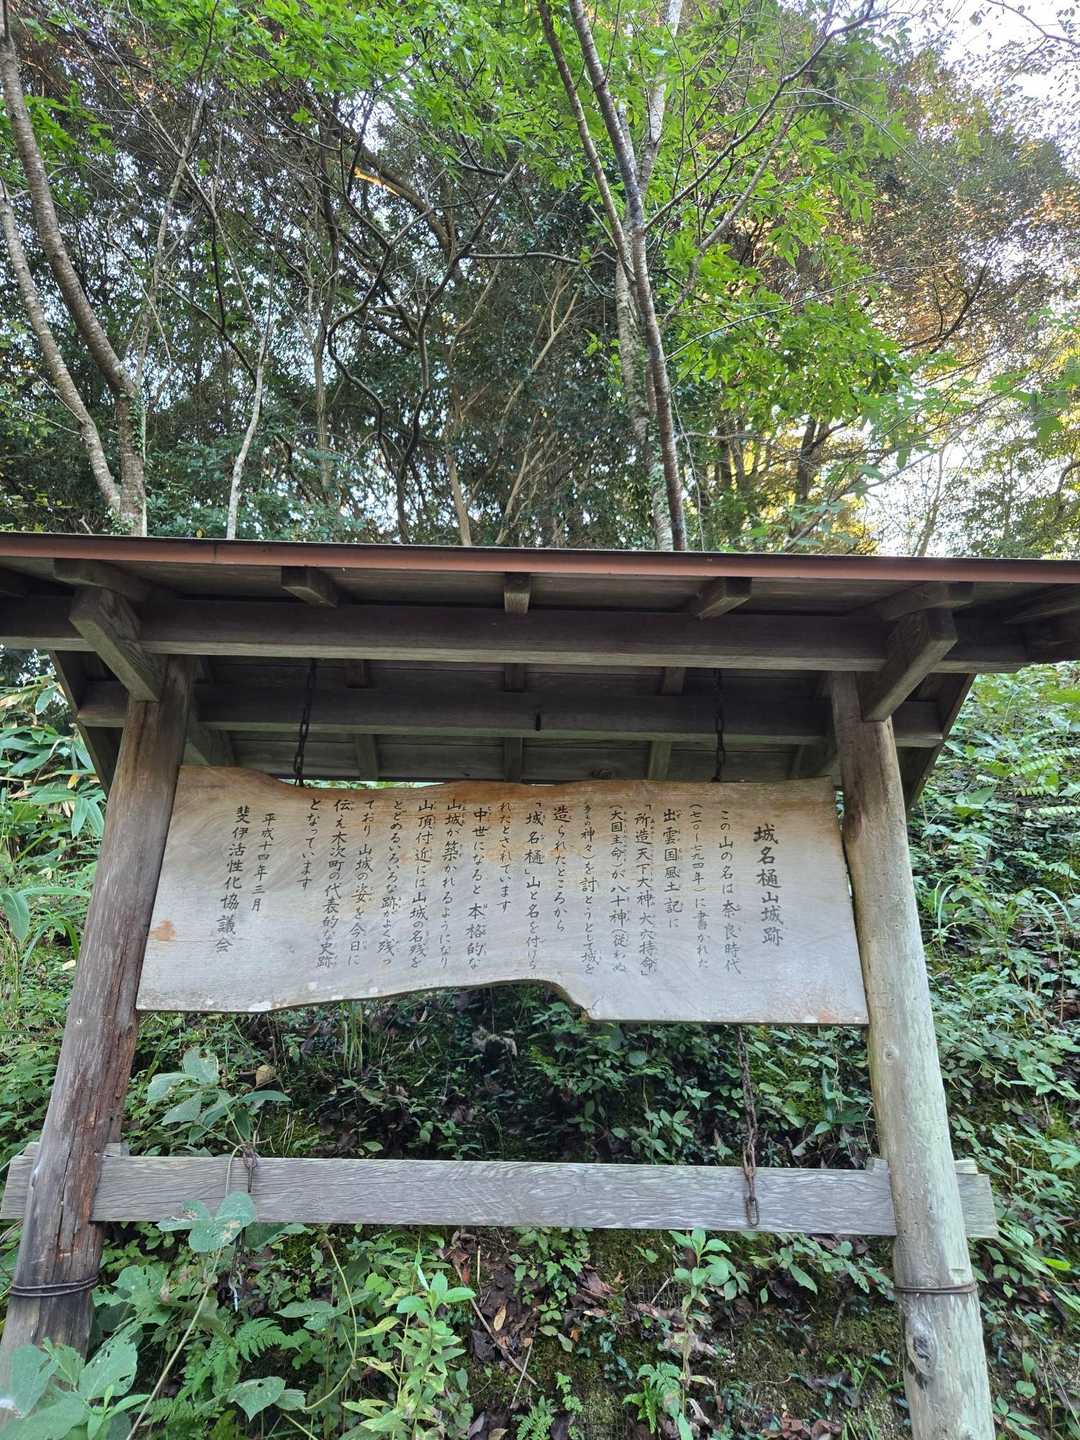 城名樋山城跡
この山の名は、奈良時代
(七一〇～七九四年)に書かれた
出雲国風土記に
「所造天下大神大穴持命」
(大国主命)が八十神(従わぬ
神々)を討とうとして城を
造られたところから
「城名樋」山と名を付けら
れたとされています
中世になると 本格的な
山城が築かれるようになり
山頂付近には山城の名残を
とどめるいろいろな跡がよく残っ
ており 山城の姿を今日に
伝え木次町の代表的な史跡
となっています
平成十四年三月
斐伊活性化協議会